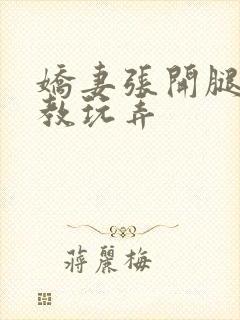 嬌妻張開腿
教玩弄
蔣麗梅